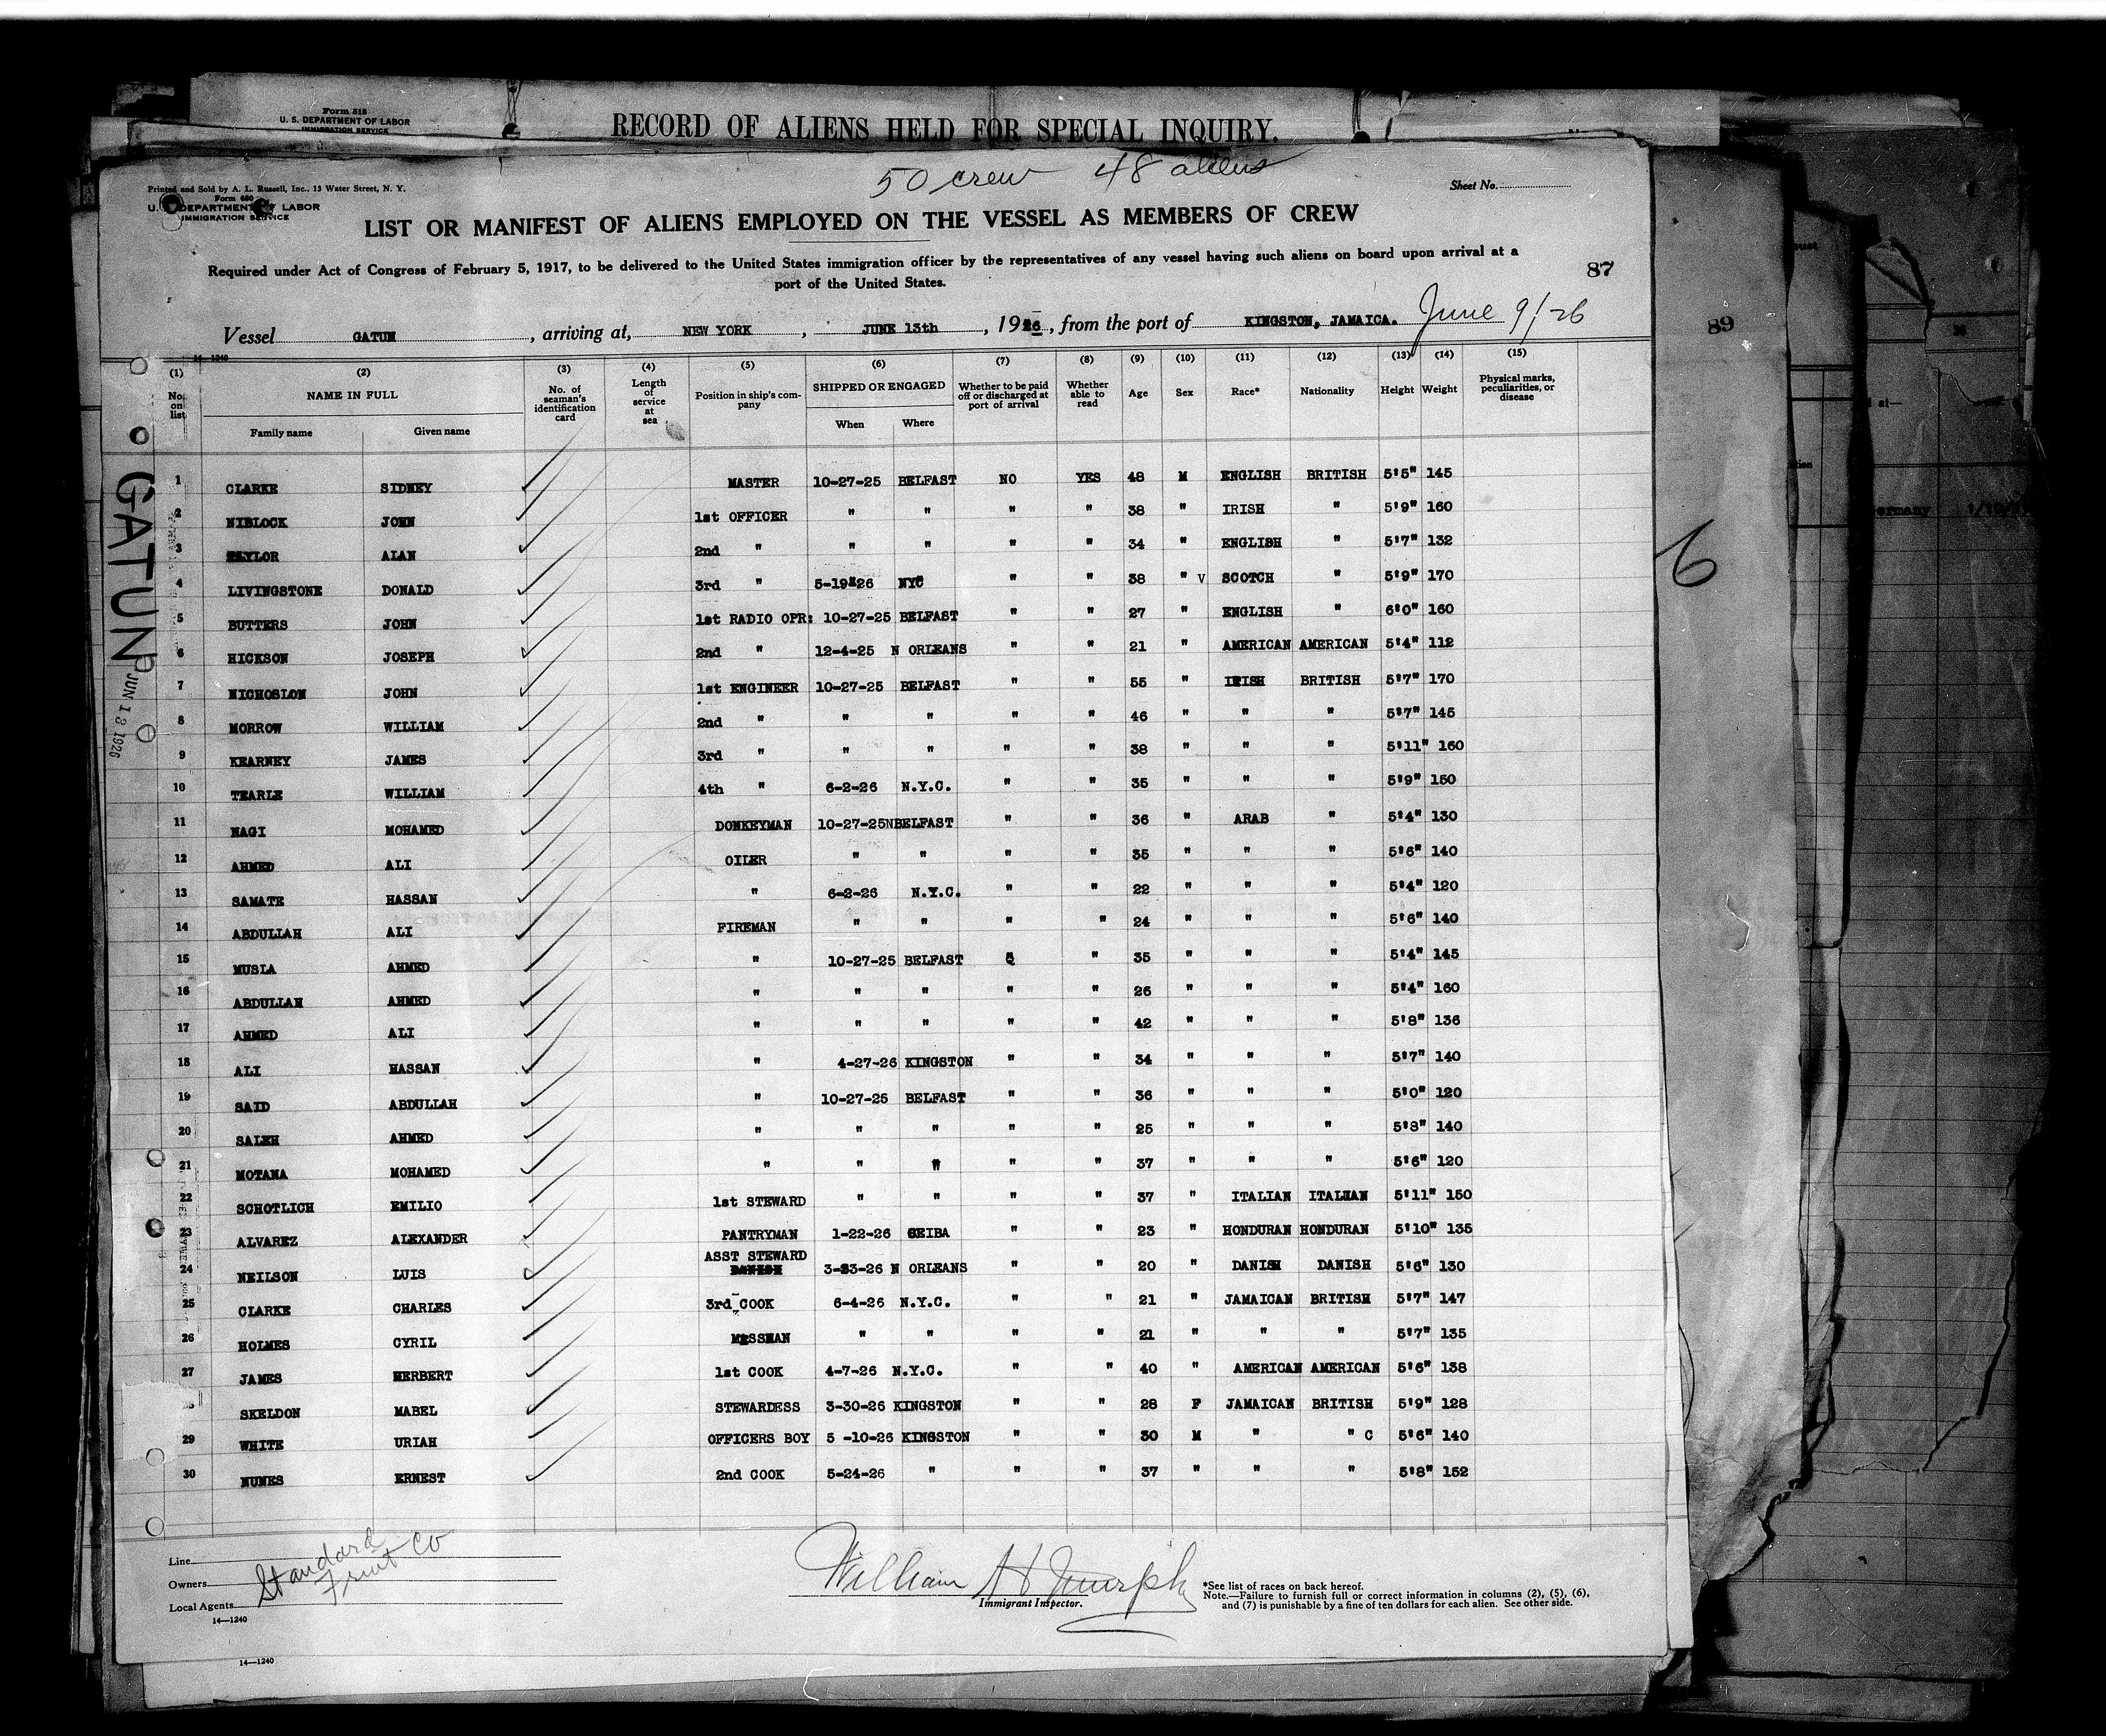 Form 518
U. S. DEPARTMENT OF LABOR
IMMIGRATION SERVICE
RECORD OF ALIENS HELD FOR SPECIAL INQUIRY.
50 crew 48 aliens
Printed and Sold by A. L. Russell, Inc., 13 Water Street, N. Y.
Form 680
U. S. DEPARTMENT OF LABOR
IMMIGRATION SERVICE
Sheet No.
LIST OR MANIFEST OF ALIENS EMPLOYED ON THE VESSEL AS MEMBERS OF CREW
Required under Act of Congress of February 5, 1917, to be delivered to the United States immigration officer by the representatives of any vessel having such aliens on board upon arrival at a
port of the United States.
87
Vessel GATUN, arriving at, NEW YORK, JUNE 13th, 1926, from the port of KINGSTON, JAMAICA. June 9/-26
89
14—1240
(1) (2) (3) (4) (5) (6) (7) (8) (9) (10) (11) (12) (13) (14) (15)
No. on list NAME IN FULL Family name Given name No. of seaman's identification card Length of service at sea Position in ship's company SHIPPED OR ENGAGED When Where Whether to be paid off or discharged at port of arrival Whether able to read Age Sex Race* Nationality Height Weight Physical marks, peculiarities, or disease
1 CLARKE SIDNEY MASTER 10-27-25 BELFAST NO YES 48 M ENGLISH BRITISH 5'5" 145
2 NIBLOCK JOHN 1st OFFICER " " " " 38 " IRISH " 5'9" 160
3 TAYLOR ALAN 2nd " " " " " 34 " ENGLISH " 5'7" 132
4 LIVINGSTONE DONALD 3rd " 5-19-26 NYC " " 38 " V SCOTCH " 5'9" 170
5 BUTTERS JOHN 1st RADIO OPR: 10-27-25 BELFAST " " 27 " ENGLISH " 6'0" 160
6 HICKSON JOSEPH 2nd " 12-4-25 N ORLEANS " " 21 " AMERICAN AMERICAN 5'4" 112
7 NICHOSLON JOHN 1st ENGINEER 10-27-25 BELFAST " " 55 " IRISH BRITISH 5'7" 170
8 MORROW WILLIAM 2nd " " " " " 46 " " " 5'7" 145
9 KEARNEY JAMES 3rd " " " " " 38 " " " 5'11" 160
10 TEARLE WILLIAM 4th " 6-2-26 N.Y.C. " " 35 " " " 5'9" 150
11 NAGI MOHAMED DONKEYMAN 10-27-25NBELFAST " " 36 " ARAB " 5'4" 130
12 AHMED ALI OILER " " " " 35 " " " 5'6" 140
13 SAMATE HASSAN " 6-2-26 N.Y.C. " " 22 " " " 5'4" 120
14 ABDULLAH ALI FIREMAN " " " " 24 " " " 5'6" 140
15 MUSLA AHMED " 10-27-25 BELFAST " " 35 " " " 5'4" 145
16 ABDULLAH AHMED " " " " " 26 " " " 5'4" 160
17 AHMED ALI " " " " " 42 " " " 5'8" 136
18 ALI HASSAN " 4-27-26 KINGSTON " " 34 " " " 5'7" 140
19 SAID ABDULLAH " 10-27-25 BELFAST " " 36 " " " 5'0" 120
20 SALEH AHMED " " " " " 25 " " " 5'8" 140
21 MOTANA MOHAMED " " " " " 37 " " " 5'6" 120
22 SCHOTLICH EMILIO 1st STEWARD " " " " 37 " ITALIAN ITALIAN 5'11" 150
23 ALVAREZ ALEXANDER PANTRYMAN 1-22-26 CEIBA " " 23 " HONDURAN HONDURAN 5'10" 135
24 NEILSON LUIS ASST STEWARD 3-23-26 N ORLEANS " " 20 " DANISH DANISH 5'6" 130
25 CLARKE CHARLES 3rd COOK 6-4-26 N.Y.C. " " 21 " JAMAICAN BRITISH 5'7" 147
26 HOLMES CYRIL MESSMAN " " " " 21 " " " 5'7" 135
27 JAMES HERBERT 1st COOK 4-7-26 N.Y.C. " " 40 " AMERICAN AMERICAN 5'6" 138
SKELDON MABEL STEWARDESS 3-30-26 KINGSTON " " 28 F JAMAICAN BRITISH 5'9" 128
29 WHITE URIAH OFFICERS BOY 5 -10-26 KINGSTON " " 30 M " " C 5'6" 140
30 NUNES ERNEST 2nd COOK 5-24-26 " " " 37 " " " 5'8" 152
GATUN
JUN 13 1926
6
Line
Owners Standard Fruit Co
Local Agents
14—1240
William H Murphy
Immigrant Inspector.
*See list of races on back hereof.
Note.—Failure to furnish full or correct information in columns (2), (5), (6),
and (7) is punishable by a fine of ten dollars for each alien. See other side.
14—1240